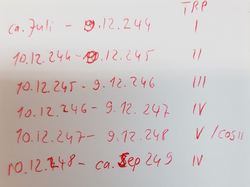 TRP
ca. Juli - 9.12.244 I
10.12.244 - 9.12.245 II
10.12.245 - 9.12.246 III
10.12.246 - 9.12.247 IV
10.12.247 - 9.12.248 V / COS II
10.12.248 - ca. Sep 249 IV